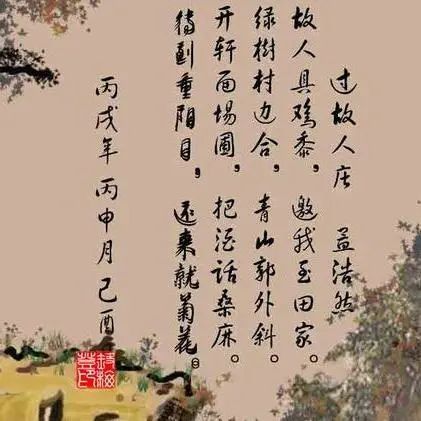 过故人庄 孟浩然
故人具鸡黍，邀我至田家。
绿树村边合，青山郭外斜。
开轩面場圃，把酒话桑麻。
待到重阳日，还来就菊花。
丙戌年 丙申月 己酉